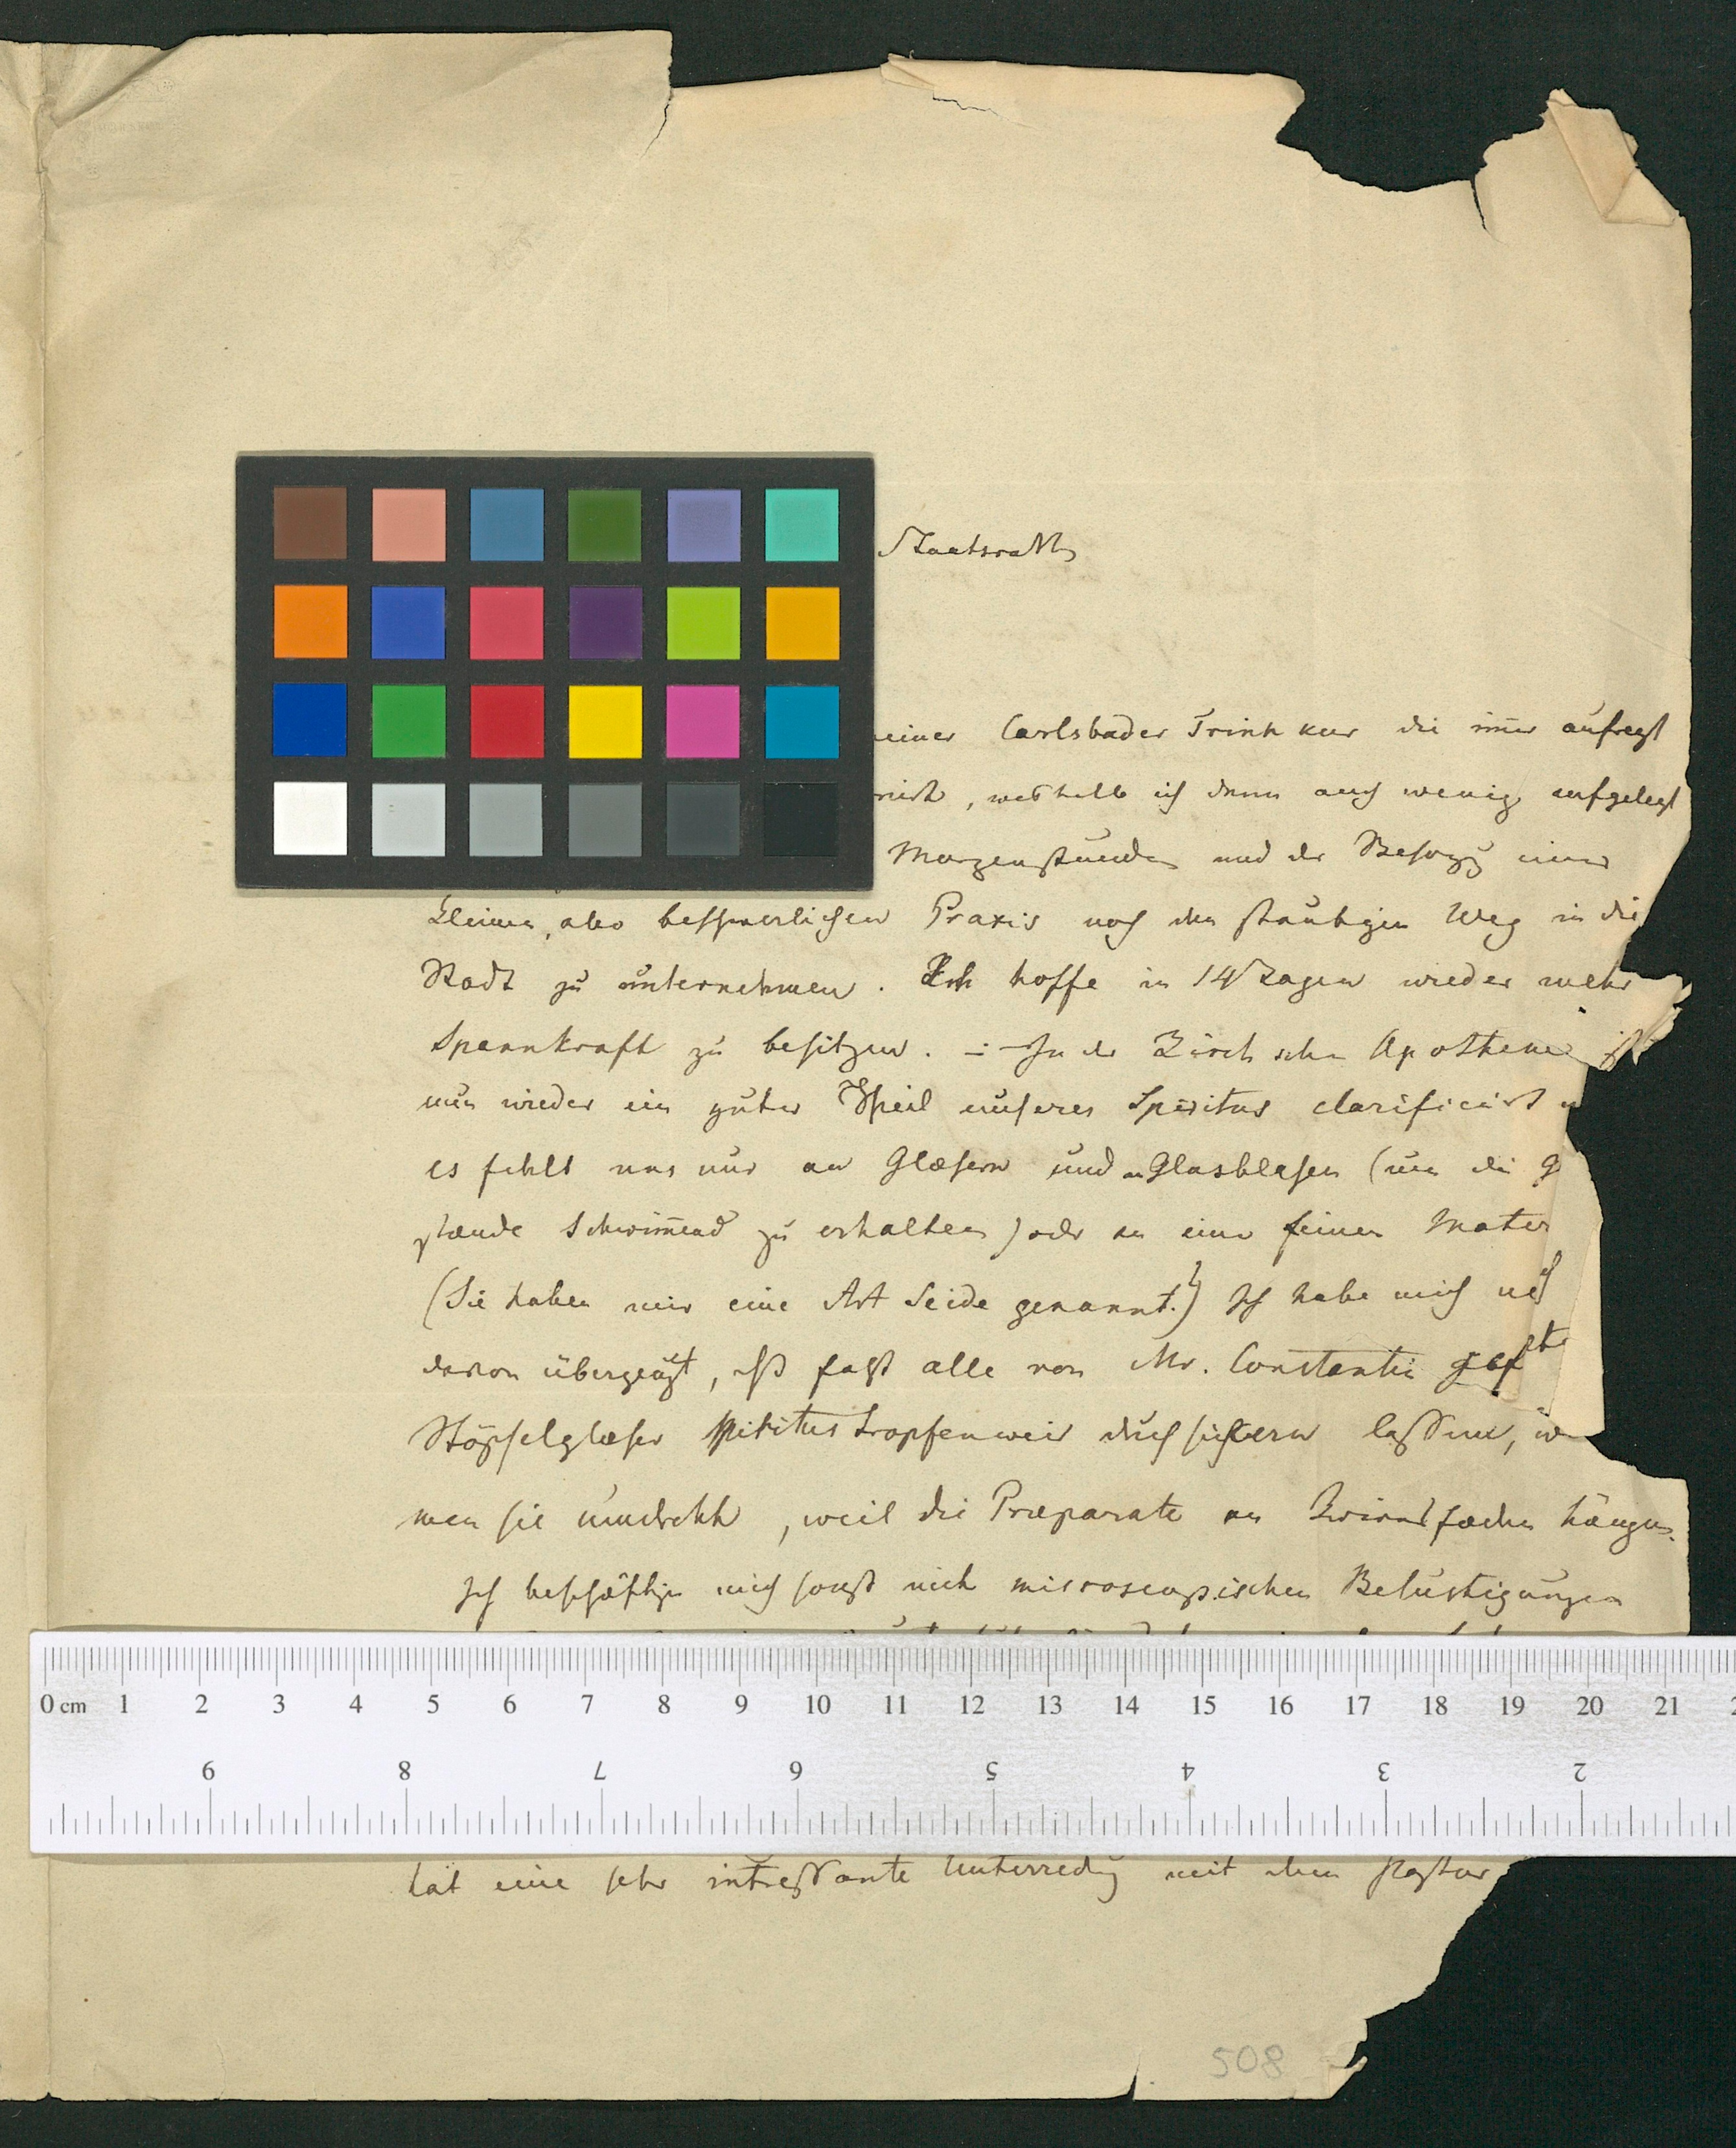 Staatsrath
einer Carlsbader Trinkkur die im̄er aufregt
, weshalb ich denn auch wenig aufgelegt
Morgenstunden und der Besorgg einer
kleinen, aber beschwerlichen Praxis noch den staubigen Weg in die
Stadt zu unternehmen. Ich hoffe in 14 Tagen wieder mehr
Spannkraft zu besitzen. — In der Apotheke ist
nun wieder ein guter Theil unseres Spiritus clarificirt
es fehlt uns nur an Glæsern und an Glasblasen (um die G
stænde schwim̄end zu erhalten) oder an einer feinen Mater
(Sie haben mir eine Art Seide genannt.) Ich habe mich
davon überzeugt, daß fast alle von Mr. Constantin
Stöpselglæser Spiritus tropfenweis durchsickern lassen, w
man sie umdreht, weil die Præparate an Zwirnsfæden hängen.
Ich beschäftige mich sonst mit microscopischen Belustigungen
hat eine sehr intressante Unterredg mit dem Pastor
508
0 cm 1 2 3 4 5 6 7 8 9 10 11 12 13 14 15 16 17 18 19 20 21
9 8 7 6 5 4 3 2